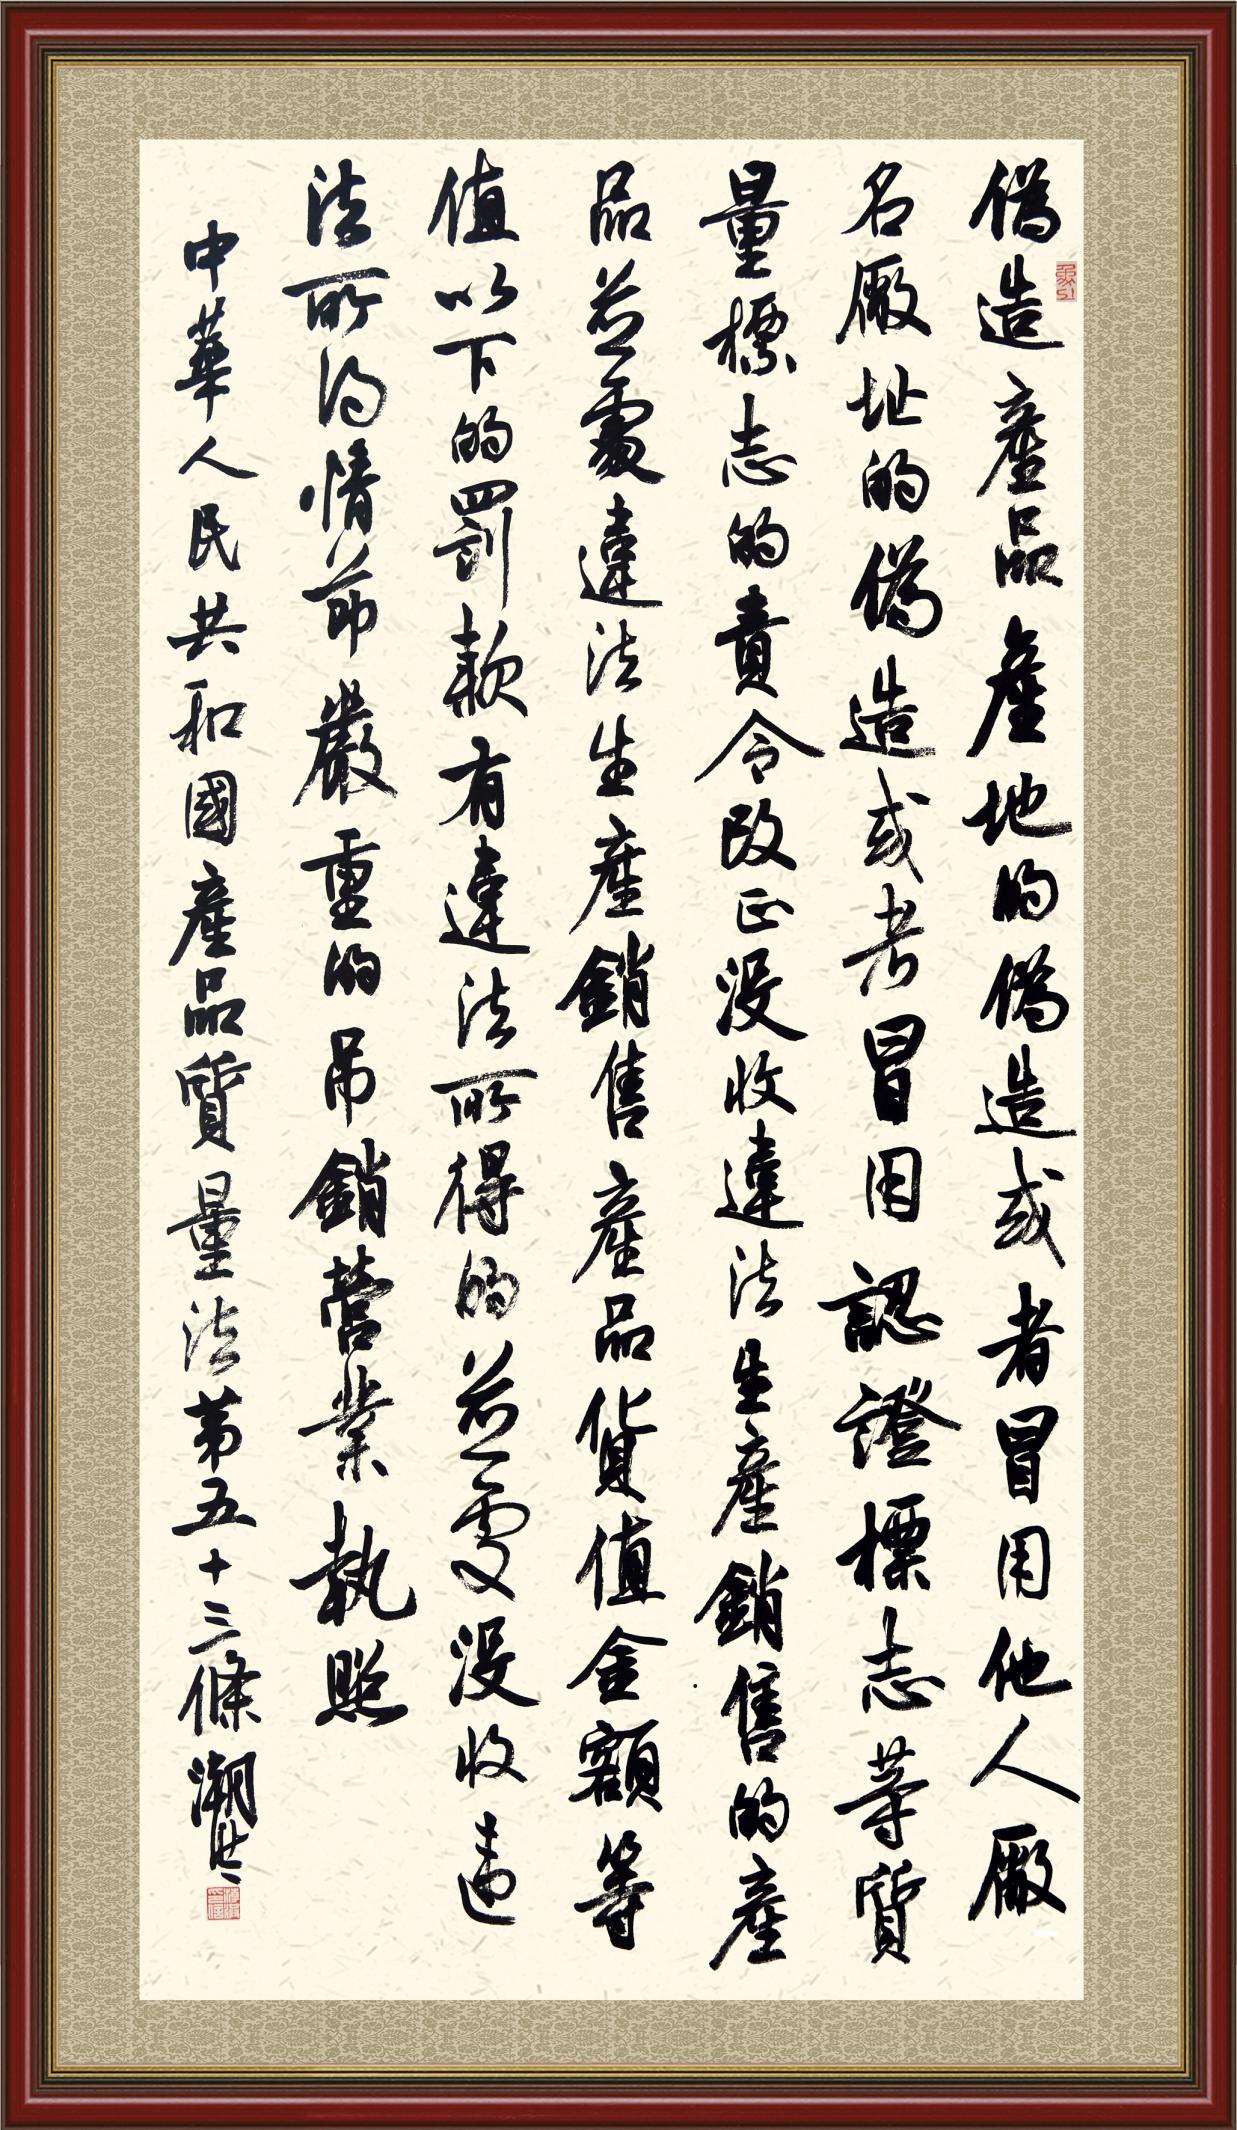 偽造產品產地的偽造或者冒用他人廠
名廠址的偽造或者冒用認證標志等質
量標志的責令改正没收違法生產銷售的產
品並處違法生產銷售產品貨值金額等
值以下的罰款有違法所得的並處没收违
法所得情節嚴重的吊銷營業執照
中華人民共和國產品質量法第五十三條